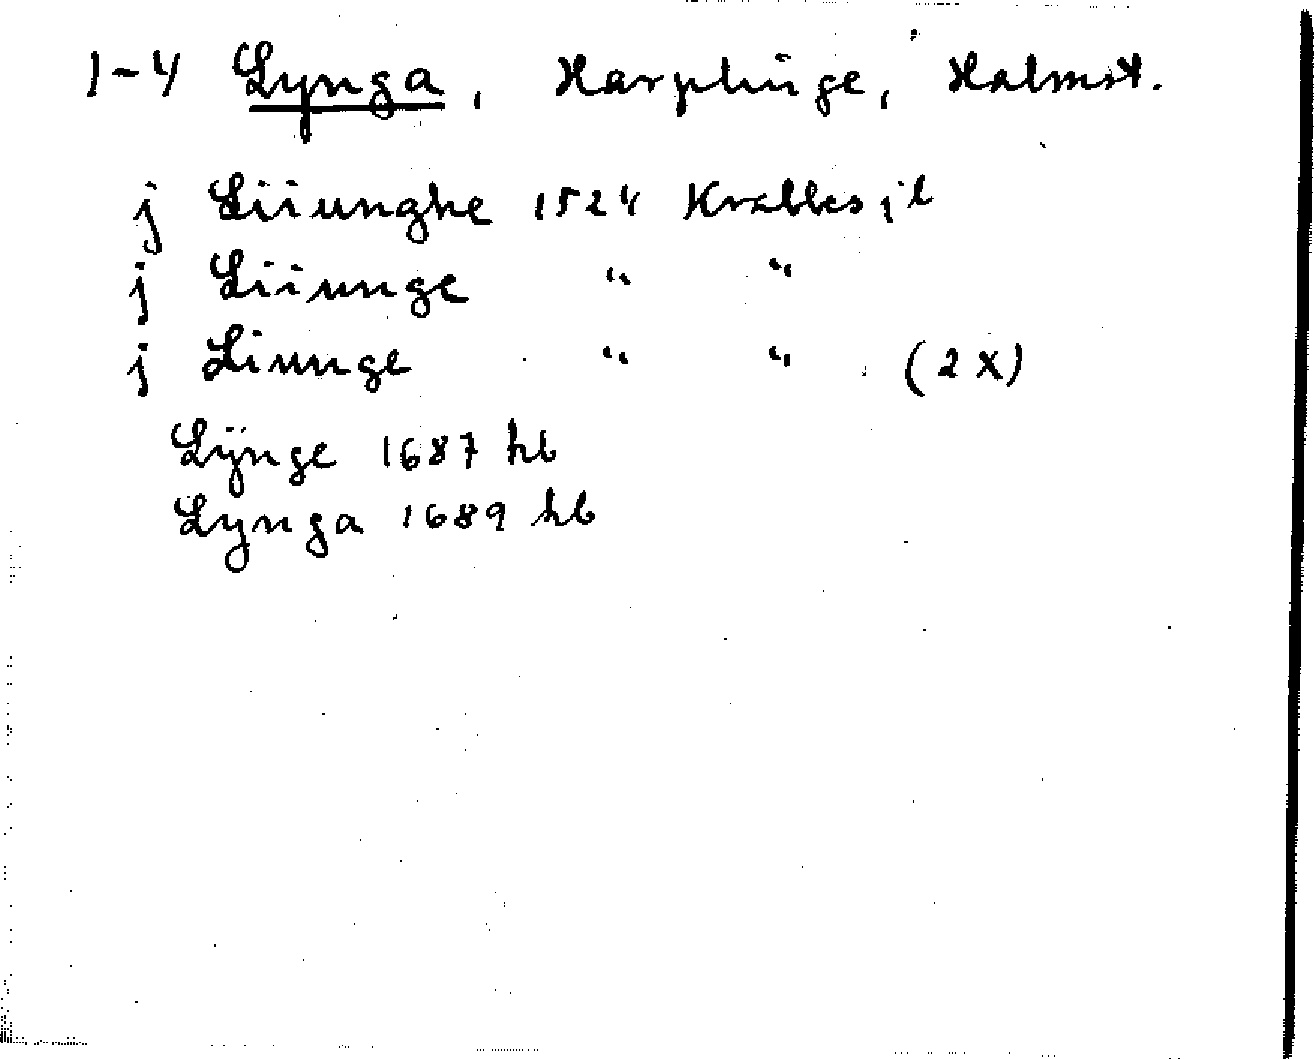 1-4 Lynga, Harplinge, Halmst.
j Liiunghe 1524 Krabbes jb
j Liiunge " "
j Liunge " " (2x)
Lÿnge 1687 hb
Lynga 1689 hb